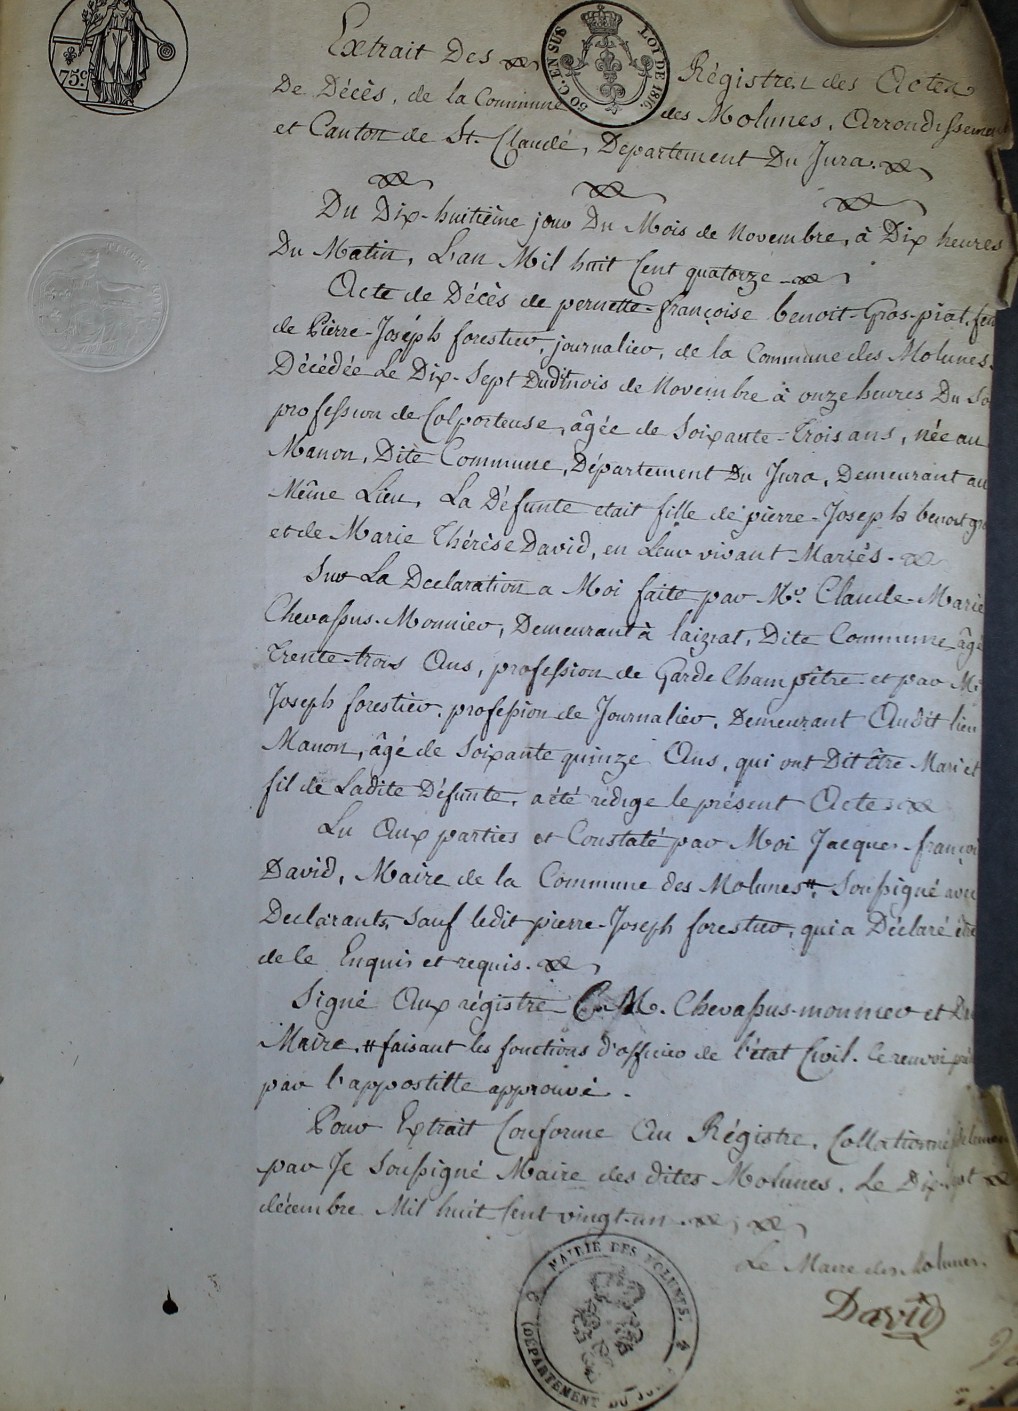 75c
50 C. EN SUS
LOI DE 1816.
Extrait Des Régistres des Actes
De Décès, de la Commune des Molunes, Arrondissement
et Canton de St. Claude, Departement Du Jura.
Du Dix-huitième jour Du Mois de Novembre, à Dix heures
Du Matin, L'an Mil huit Cent quatorze
Acte de Décès de pernette-françoise benoit-Gros-piat, fem
de Pierre-Joséph forestier, journalier, de la Commune des Molunes.
Décédée Le Dix-Sept Dudit mois de Novembre à onze heures Du So
profession de Colporteuse, âgée de Soixante-trois ans, née au
Manon, Dite Commune, Département Du Jura, Demeurant au
Même Lieu, La Défunte etait fille de pierre-Joseph benoit gro
et de Marie Thérèse David, en Leur vivant Mariés.
Sur La Declaration a Moi faite par Mr. Claude-Marie
Chevassus-Monnier, Demeurant à laizrat, Dite Commune, âgé
trente-trois Ans, profession de Garde Champêtre et par Mr
Joseph forestier, profession de Journalier, Demeurant Audit lieu
Manon, âgé de Soixante quinze Ans, qui ont Dit être Mari et
fil de Ladite Défunte, a été rédigé le présent Acte
Lu Aux parties et Constaté par Moi Jacques-françoi
David, Maire de la Commune des Molunes # Soussigné avec
Declarants, Sauf ledit pierre-Joseph forestier, qui a Déclaré
de le Enquis et requis.
Signé Aux régistre C. M. Chevassus-monnier et Da
Maire, # faisant les fonctions d'officier de l'état Civil. Ce renvoi
par l'appostille approuvé.
Pour Extrait Conforme Au Régistre, Collationné
par Je Soussigné Maire des dites Molunes. Le
décembre Mil huit Cent vingt-un
Le Maire des Molunes.
David
MAIRIE DES MOLUNES.
(DÉPARTEMENT DU JU